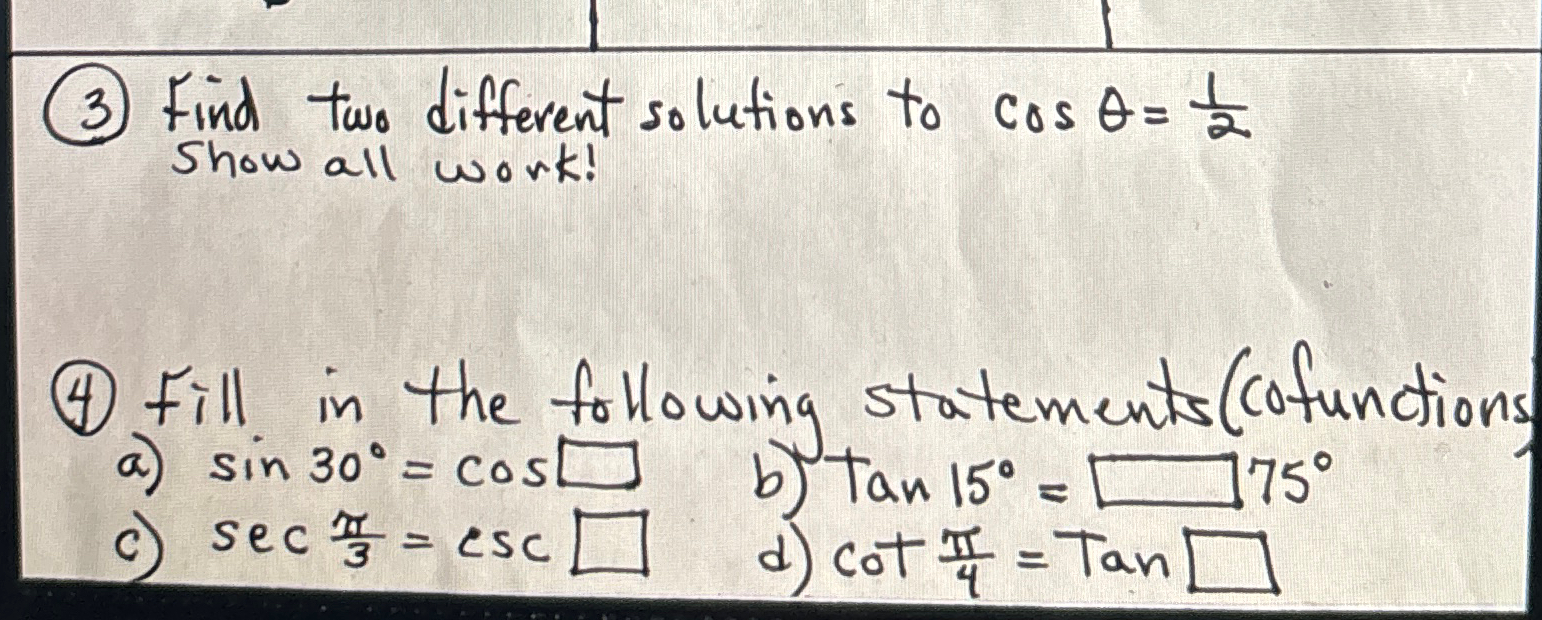 ③ Find two different solutions to cos θ = 1/2
Show all work!
④ Fill in the following statements (cofunctions)
a) sin 30° = cos □ b) Tan 15° = □ 75°
c) sec π/3 = csc □ d) cot π/4 = Tan □